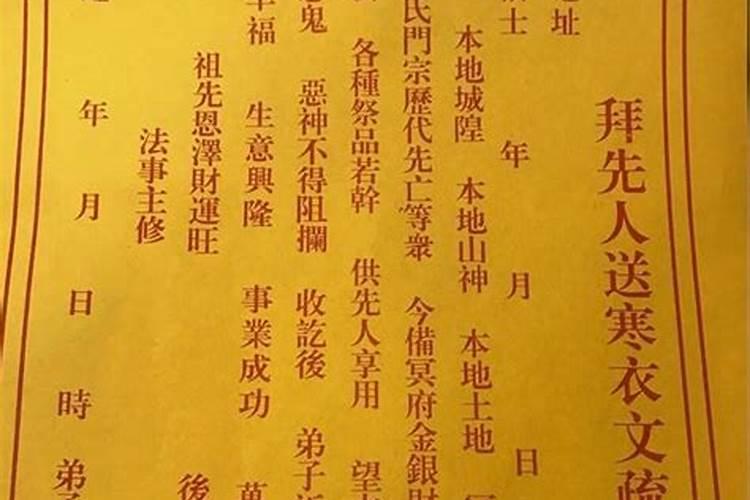 拜先人送寒衣文疏
地址
年 月 日
本地城隍 本地山神 本地土地
氏門宗歷代先亡等衆 今備冥府金銀財
各種祭品若幹 供先人享用 望
鬼 惡神不得阻攔 收訖後 弟子
幸福 生意興隆 事業成功 萬
祖先恩澤財運旺 後
法事主修
年 月 日 時 弟子